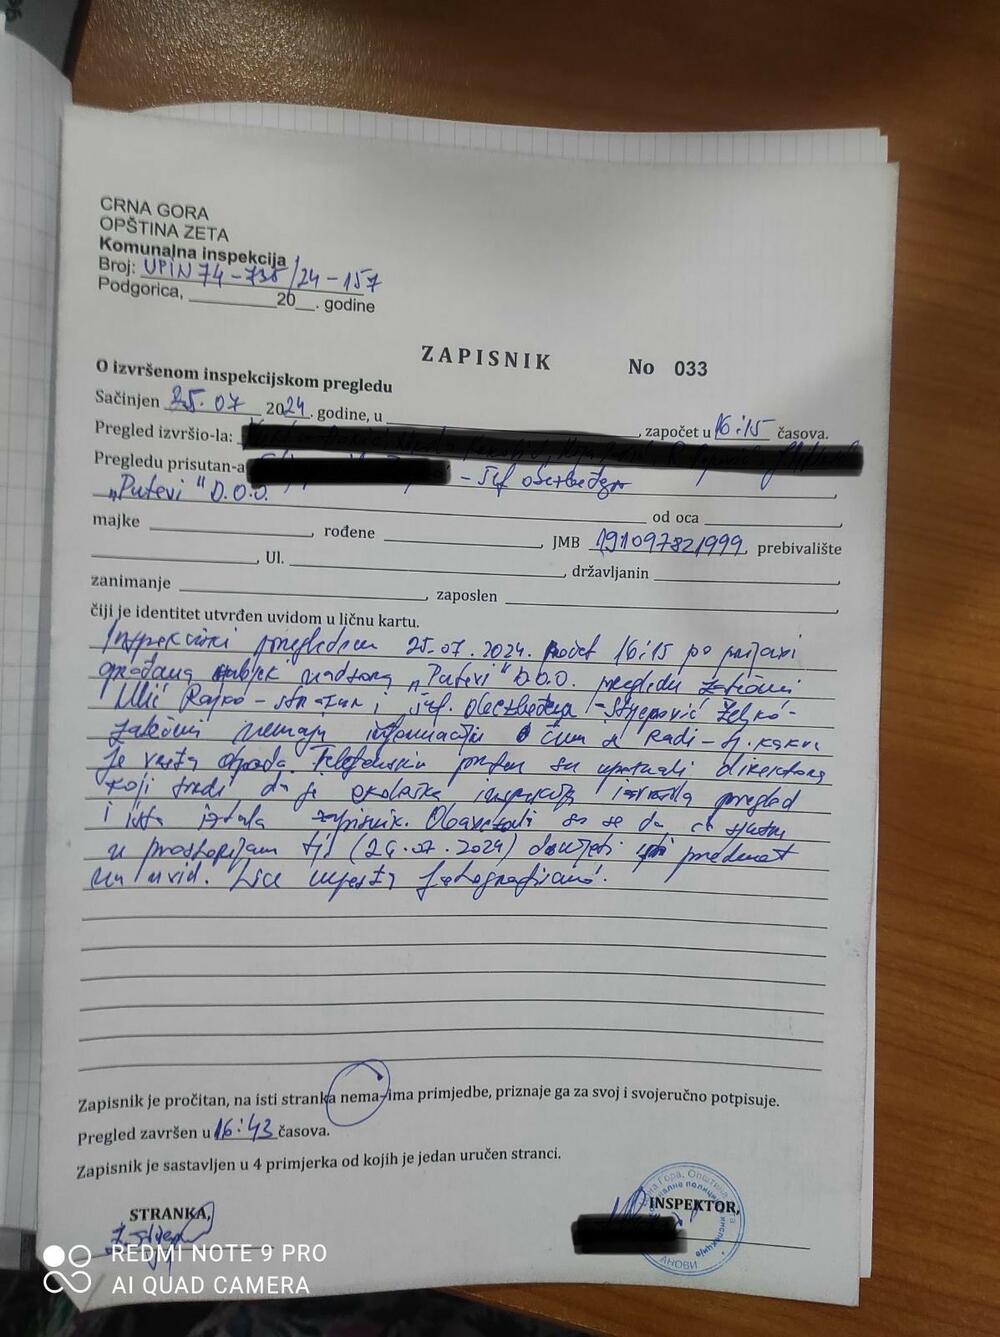 CRNA GORA
OPŠTINA ZETA
Komunalna inspekcija
Broj: UPIN 74-738/24-157
Podgorica, ________20__. godine
ZAPISNIK No 033
O izvršenom inspekcijskom pregledu
Sačinjen 25.07 2024. godine, u ________, započet u 16:15 časova.
Pregled izvršio-la:
Pregledu prisutan-a - šef obezbeđenja
„Putevi" D.O.O. od oca ________,
majke ________, rođene ________, JMB 191097821999, prebivalište
________, Ul. ________, državljanin ________,
zanimanje ________, zaposlen ________,
čiji je identitet utvrđen uvidom u ličnu kartu.
Inspekcijski pregledom 25.07.2024. počet 16:15 po prijavi
građana subjek nadzora „Putevi" D.O.O. pregledu zatečeni
Ilić Rajko - stražar i šef. obezbeđenja - Stjepović Željko -
zatečeni nemaju informaciju o čemu se radi - tj. kakva
je vrsta otpada. Telefonskim putem su upoznali direktora
koji tvrdi da je ekološka inspekcija izvršila pregled
i ista izdala zapisnik. Obavezali su se da će sjutra
u prostorijam tj. (26.07.2024) donijeti predmet
na uvid. Lice mjesta fotografisano.
Zapisnik je pročitan, na isti stranka nema-ima primjedbe, priznaje ga za svoj i svojeručno potpisuje.
Pregled završen u 16:43 časova.
Zapisnik je sastavljen u 4 primjerka od kojih je jedan uručen stranci.
STRANKA, INSPEKTOR,
REDMI NOTE 9 PRO
AI QUAD CAMERA